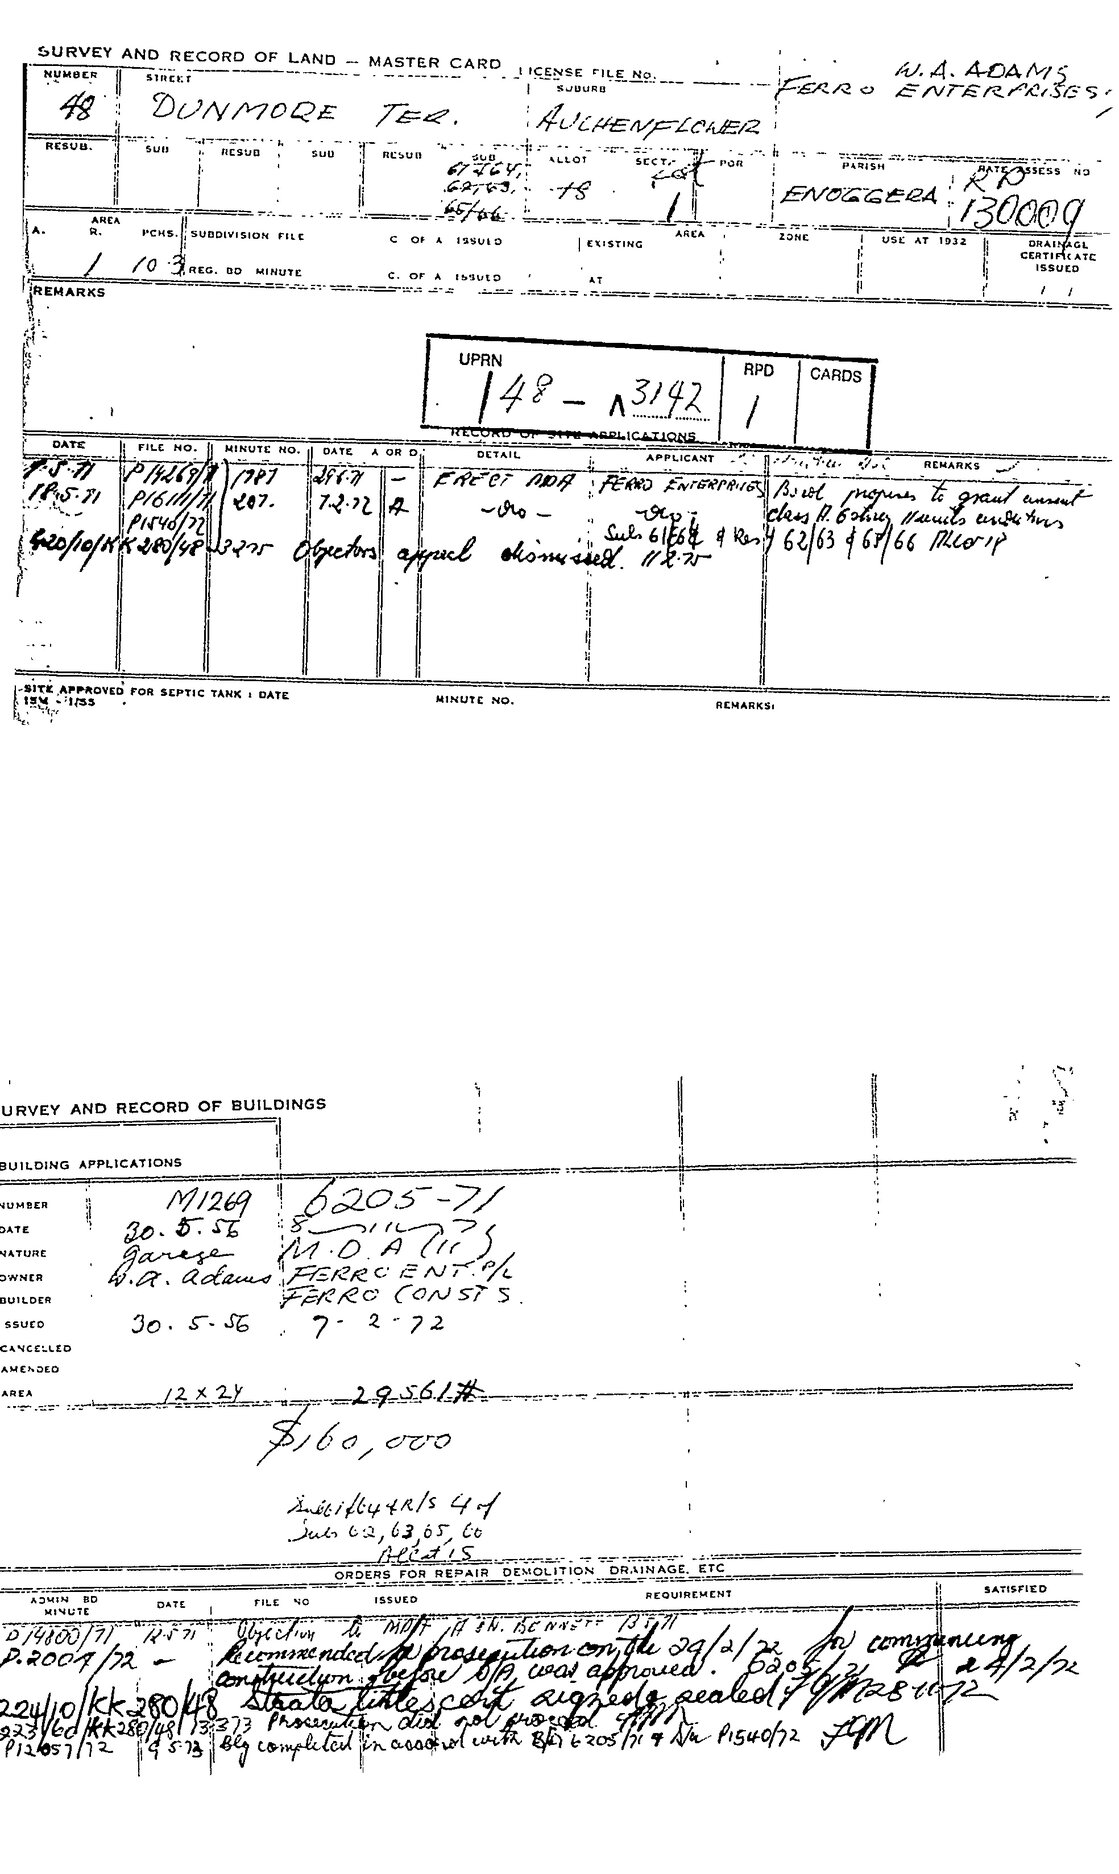 SURVEY AND RECORD OF LAND – MASTER CARD LICENSE FILE No. W. A. ADAMS
FERRO ENTERPRISES
NUMBER STREET SUBURB
48 DUNMORE TER. AUCHENFLOWER
RESUB. SUB RESUB SUB RESUB SUB ALLOT SECT. POR PARISH RATE ASSESS NO
61 & 64, RP
62/63, 1 ENOGGERA 130009
65/66
A. AREA R. PCHS. SUBDIVISION FILE C OF A ISSUED EXISTING AREA ZONE USE AT 1932 DRAINAGE CERTIFICATE ISSUED
1 10.3 REG. BD MINUTE C. OF A ISSUED AT / /
REMARKS
UPRN RPD CARDS
148 – 3142 1
RECORD OF SITE APPLICATIONS
DATE FILE NO. MINUTE NO. DATE A OR D DETAIL APPLICANT REMARKS
P14269/71 1987 29671 – ERECT MDA FERRO ENTERPRISES Board proposes to grant consent
18.5.71 P16111/71 207. 7.2.72 A – do – – do – class A
P1540/72 Subs 61/64 & 62/63 & 65/66
K280/48 Objectors appeal dismissed.
SITE APPROVED FOR SEPTIC TANK : DATE MINUTE NO. REMARKS:
15M – 1/55
URVEY AND RECORD OF BUILDINGS
BUILDING APPLICATIONS
NUMBER M1269 6205-71
DATE 30. 5. 56 8 – 11 – 71
NATURE garage M. D. A (11)
OWNER W. A. Adams FERRO ENT. P/L
BUILDER FERRO CONSTS.
ISSUED 30. 5-56 7- 2-72
CANCELLED
AMENDED
AREA 12 x 24 29561#
$160,000
R/S 4 of
Subs 62, 63, 65, 66
ORDERS FOR REPAIR DEMOLITION DRAINAGE, ETC
ADMIN BD MINUTE DATE FILE NO ISSUED REQUIREMENT SATISFIED
D14800/71 12.5.71 Objection to BENNETT
P.2004/72 – Recommended prosecution on the 29/2/72 for commencing
construction before B/A was approved. 6205/71 24/2/72
224/10/KK280/48 Strata titles cert signed & sealed
223/60/KK280/48 Prosecution did not proceed
P12057/72 9 5 73 Blg completed in accord with B/A 6205/71 & P1540/72